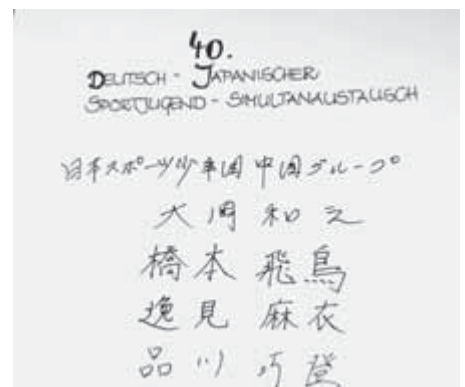 40.
DEUTSCH - JAPANISCHER
SPORTJUGEND - SIMULTANAUSTAUSCH
日本スポーツ少年団 中国グループ
大岡 和之
橋本 飛鳥
逸見 麻衣
品川 巧登